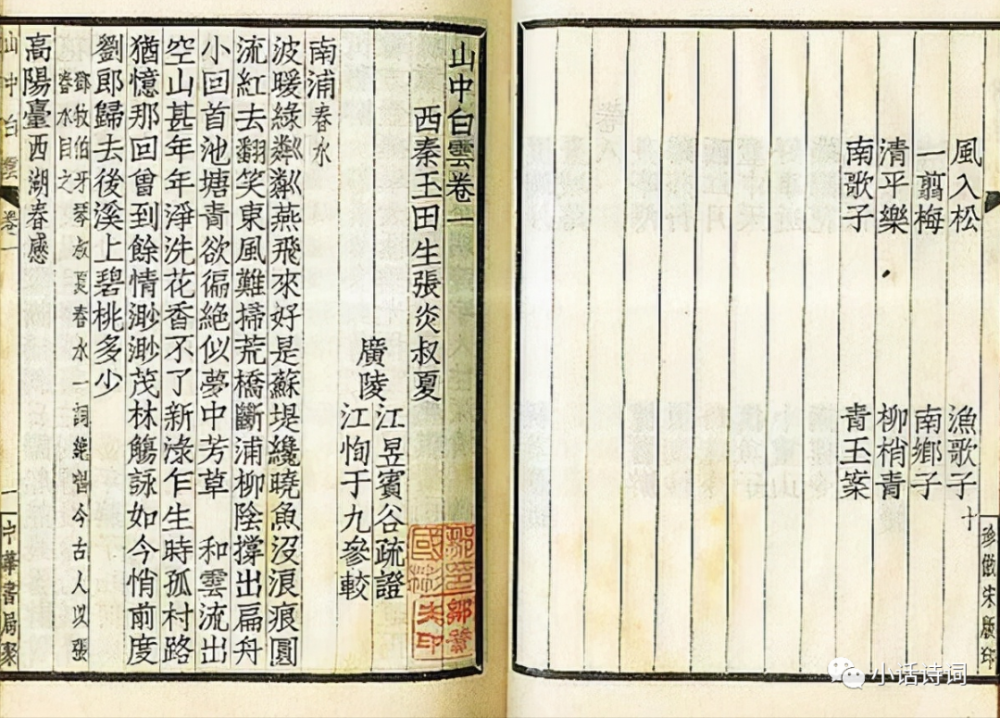 風入松 漁歌子十
一翦梅 南鄉子
清平樂 柳梢青
南歌子 青玉案
珍倣宋版印
山中白雲卷一
西秦玉田生張炎叔夏
廣陵
江昱賓谷疏證
江恂于九參較
南浦春水
波暖綠粼粼燕飛來好是蘇堤纔曉魚沒浪痕圓
流紅去翻笑東風難掃荒橋斷浦柳陰撐出扁舟
小回首池塘青欲徧絕似夢中芳草 和雲流出
空山甚年年淨洗花香不了新淥乍生時孤村路
猶憶那回曾到餘情渺渺茂林觴詠如今悄前度
劉郎歸去後溪上碧桃多少
鄧牧伯牙琴叔夏春水一詞絕唱今古人以張
春水目之
高陽臺西湖春感
山中白雲 卷一 一 中華書局聚
小话诗词